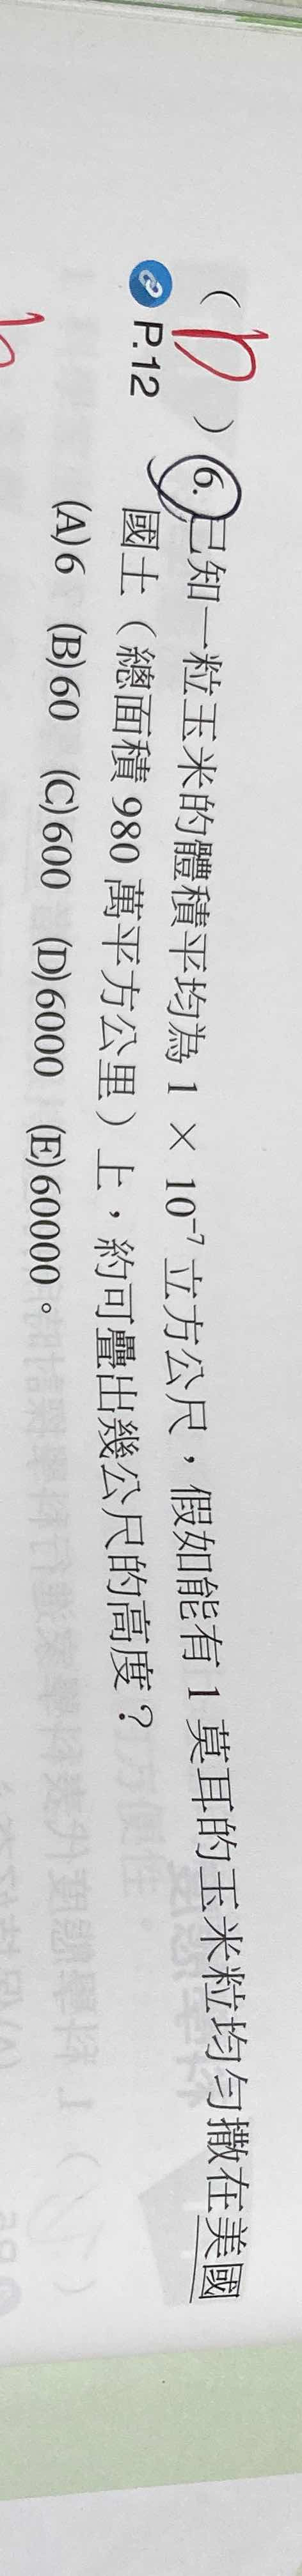 ( D ) 6. 已知一粒玉米的體積平均為 1 × 10⁻⁷ 立方公尺，假如能有 1 莫耳的玉米粒均勻撒在美國
P.12 國土（總面積 980 萬平方公里）上，約可疊出幾公尺的高度？
(A)6 (B)60 (C)600 (D)6000 (E)60000。